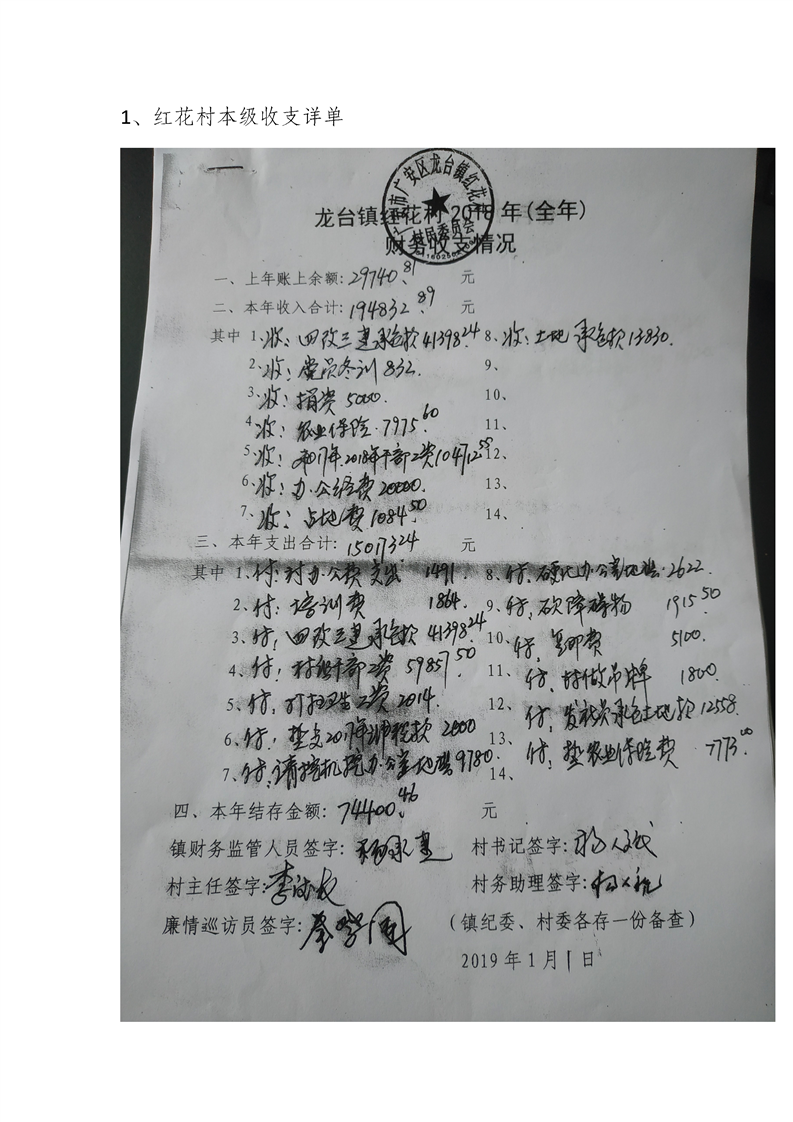 1、红花村本级收支详单
广安区龙台镇红花村
村民委员会
龙台镇红花村2018年(全年)
财务收支情况
一、上年账上余额:29740.81元
二、本年收入合计:194832.89元
其中 1、收:四改三建承包款41398.24 8、收:土地承包款13830.
2、收:党员冬训832. 9、
3、收:捐费5000. 10、
4、收:农业保险.7975.60 11、
5、收:和17年.2018年干部工资104712.55 12、
6、收:办公经费20000. 13、
7、收:占地费1084.50 14、
三、本年支出合计:150173.24元
其中 1、付:村办公费支出 1491. 8、付:硬化办公室地坝.2622.
2、付:培训费 1864. 9、付:砍障碍物 1915.50
3、付:四改三建承包款41398.24 10、付:复印费 5100.
4、付:村级干部工资59857.50 11、付:村做吊牌 1800.
5、付:打扫卫生工资2014. 12、付:发社员承包土地款12558.
6、付:垫交2017年 税款2000 13、付:垫农业保险费 7773.00
7、付:请挖机挖办公室地坝9780. 14、
四、本年结存金额:74400.46元
镇财务监管人员签字: 村书记签字:
村主任签字:李 村务助理签字:
廉情巡访员签字: (镇纪委、村委各存一份备查)
2019年1月1日